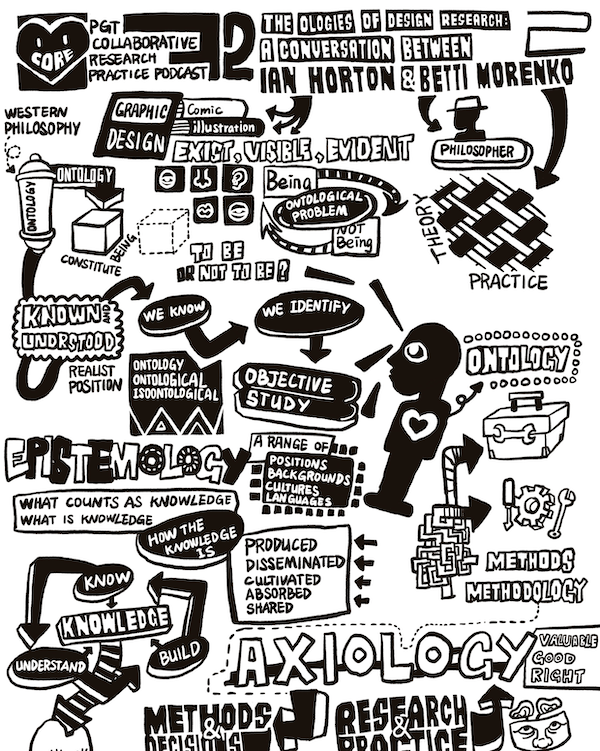 CORE
PGT
COLLABORATIVE
RESEARCH
PRACTICE PODCAST
THE OLOGIES OF DESIGN RESEARCH:
A CONVERSATION BETWEEN
IAN HORTON & BETTI MORENKO
WESTERN
PHILOSOPHY
GRAPHIC
DESIGN
Comic
illustration
EXIST, VISIBLE, EVIDENT
PHILOSOPHER
ONTOLOGY
ONTOLOGY
CONSTITUTE BEING
Being
ONTOLOGICAL
PROBLEM
NOT
Being
TO BE
OR NOT TO BE?
THEORY
PRACTICE
KNOWN AND
UNDRSTOOD
REALIST
POSITION
WE KNOW
WE IDENTIFY
ONTOLOGY
ONTOLOGICAL
ISOONTOLOGICAL
OBJECTIVE
STUDY
ONTOLOGY
EPISTEMOLOGY
A RANGE OF
POSITIONS
BACKGROUNDS
CULTURES
LANGUAGES
WHAT COUNTS AS KNOWLEDGE
WHAT IS KNOWLEDGE
HOW THE
KNOWLEDGE
IS
PRODUCED
DISSEMINATED
CULTIVATED
ABSORBED
SHARED
METHODS
METHODOLOGY
KNOW
KNOWLEDGE
UNDERSTAND
BUILD
AXIOLOGY
VALUABLE
GOOD
RIGHT
METHODS
&
DECISIONS
RESEARCH
&
PRACTICE